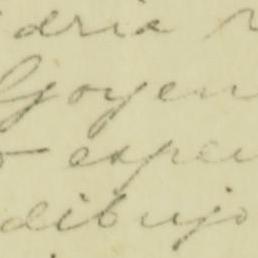 idria
Goyen
o expe
dibujo